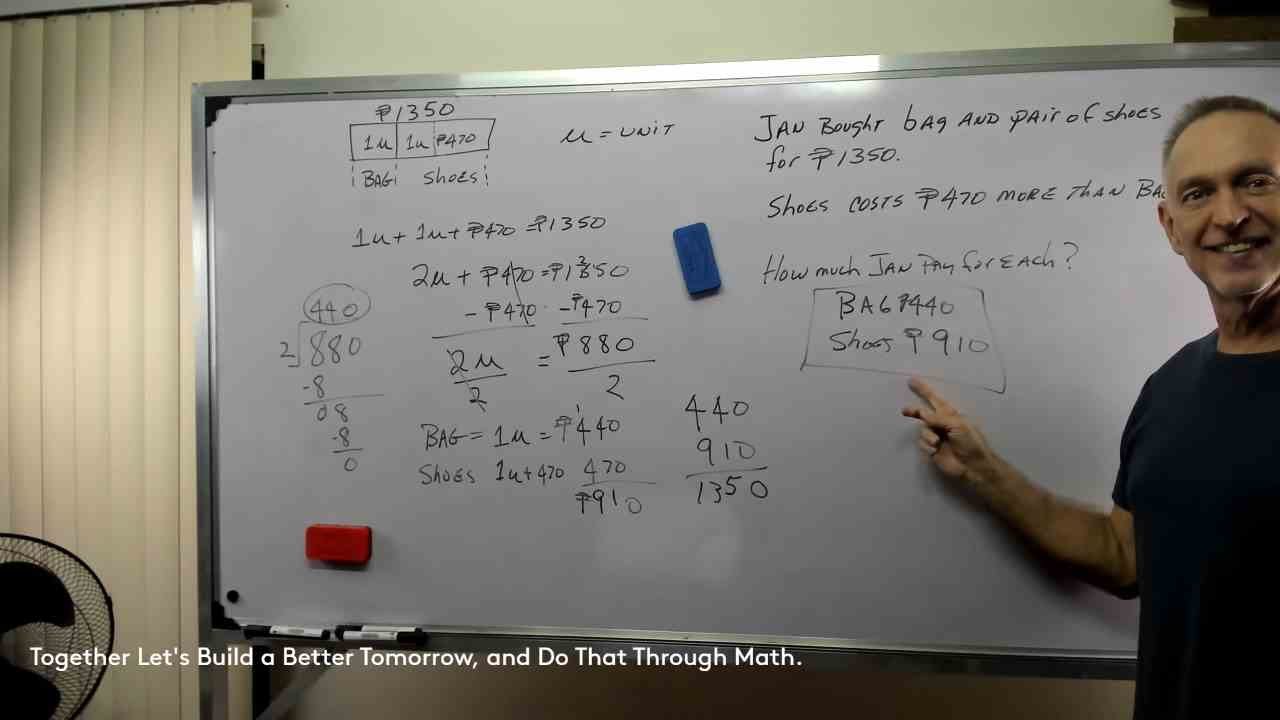 ₱1350
1u 1u ₱470
BAG Shoes
u = UNIT
1u + 1u + ₱470 = ₱1350
2u + ₱470 = ₱1350
- ₱470 - ₱470
2u = ₱880
2 2
440
2 880
-8
08
-8
0
BAG = 1u = ₱440
Shoes 1u + 470 470
₱910
440
910
1350
JAN Bought bag AND pair of shoes
for ₱1350.
Shoes costs ₱470 MORE THAN
How much JAN Pay for EACH?
BAG ₱440
Shoes ₱910
Together Let's Build a Better Tomorrow, and Do That Through Math.